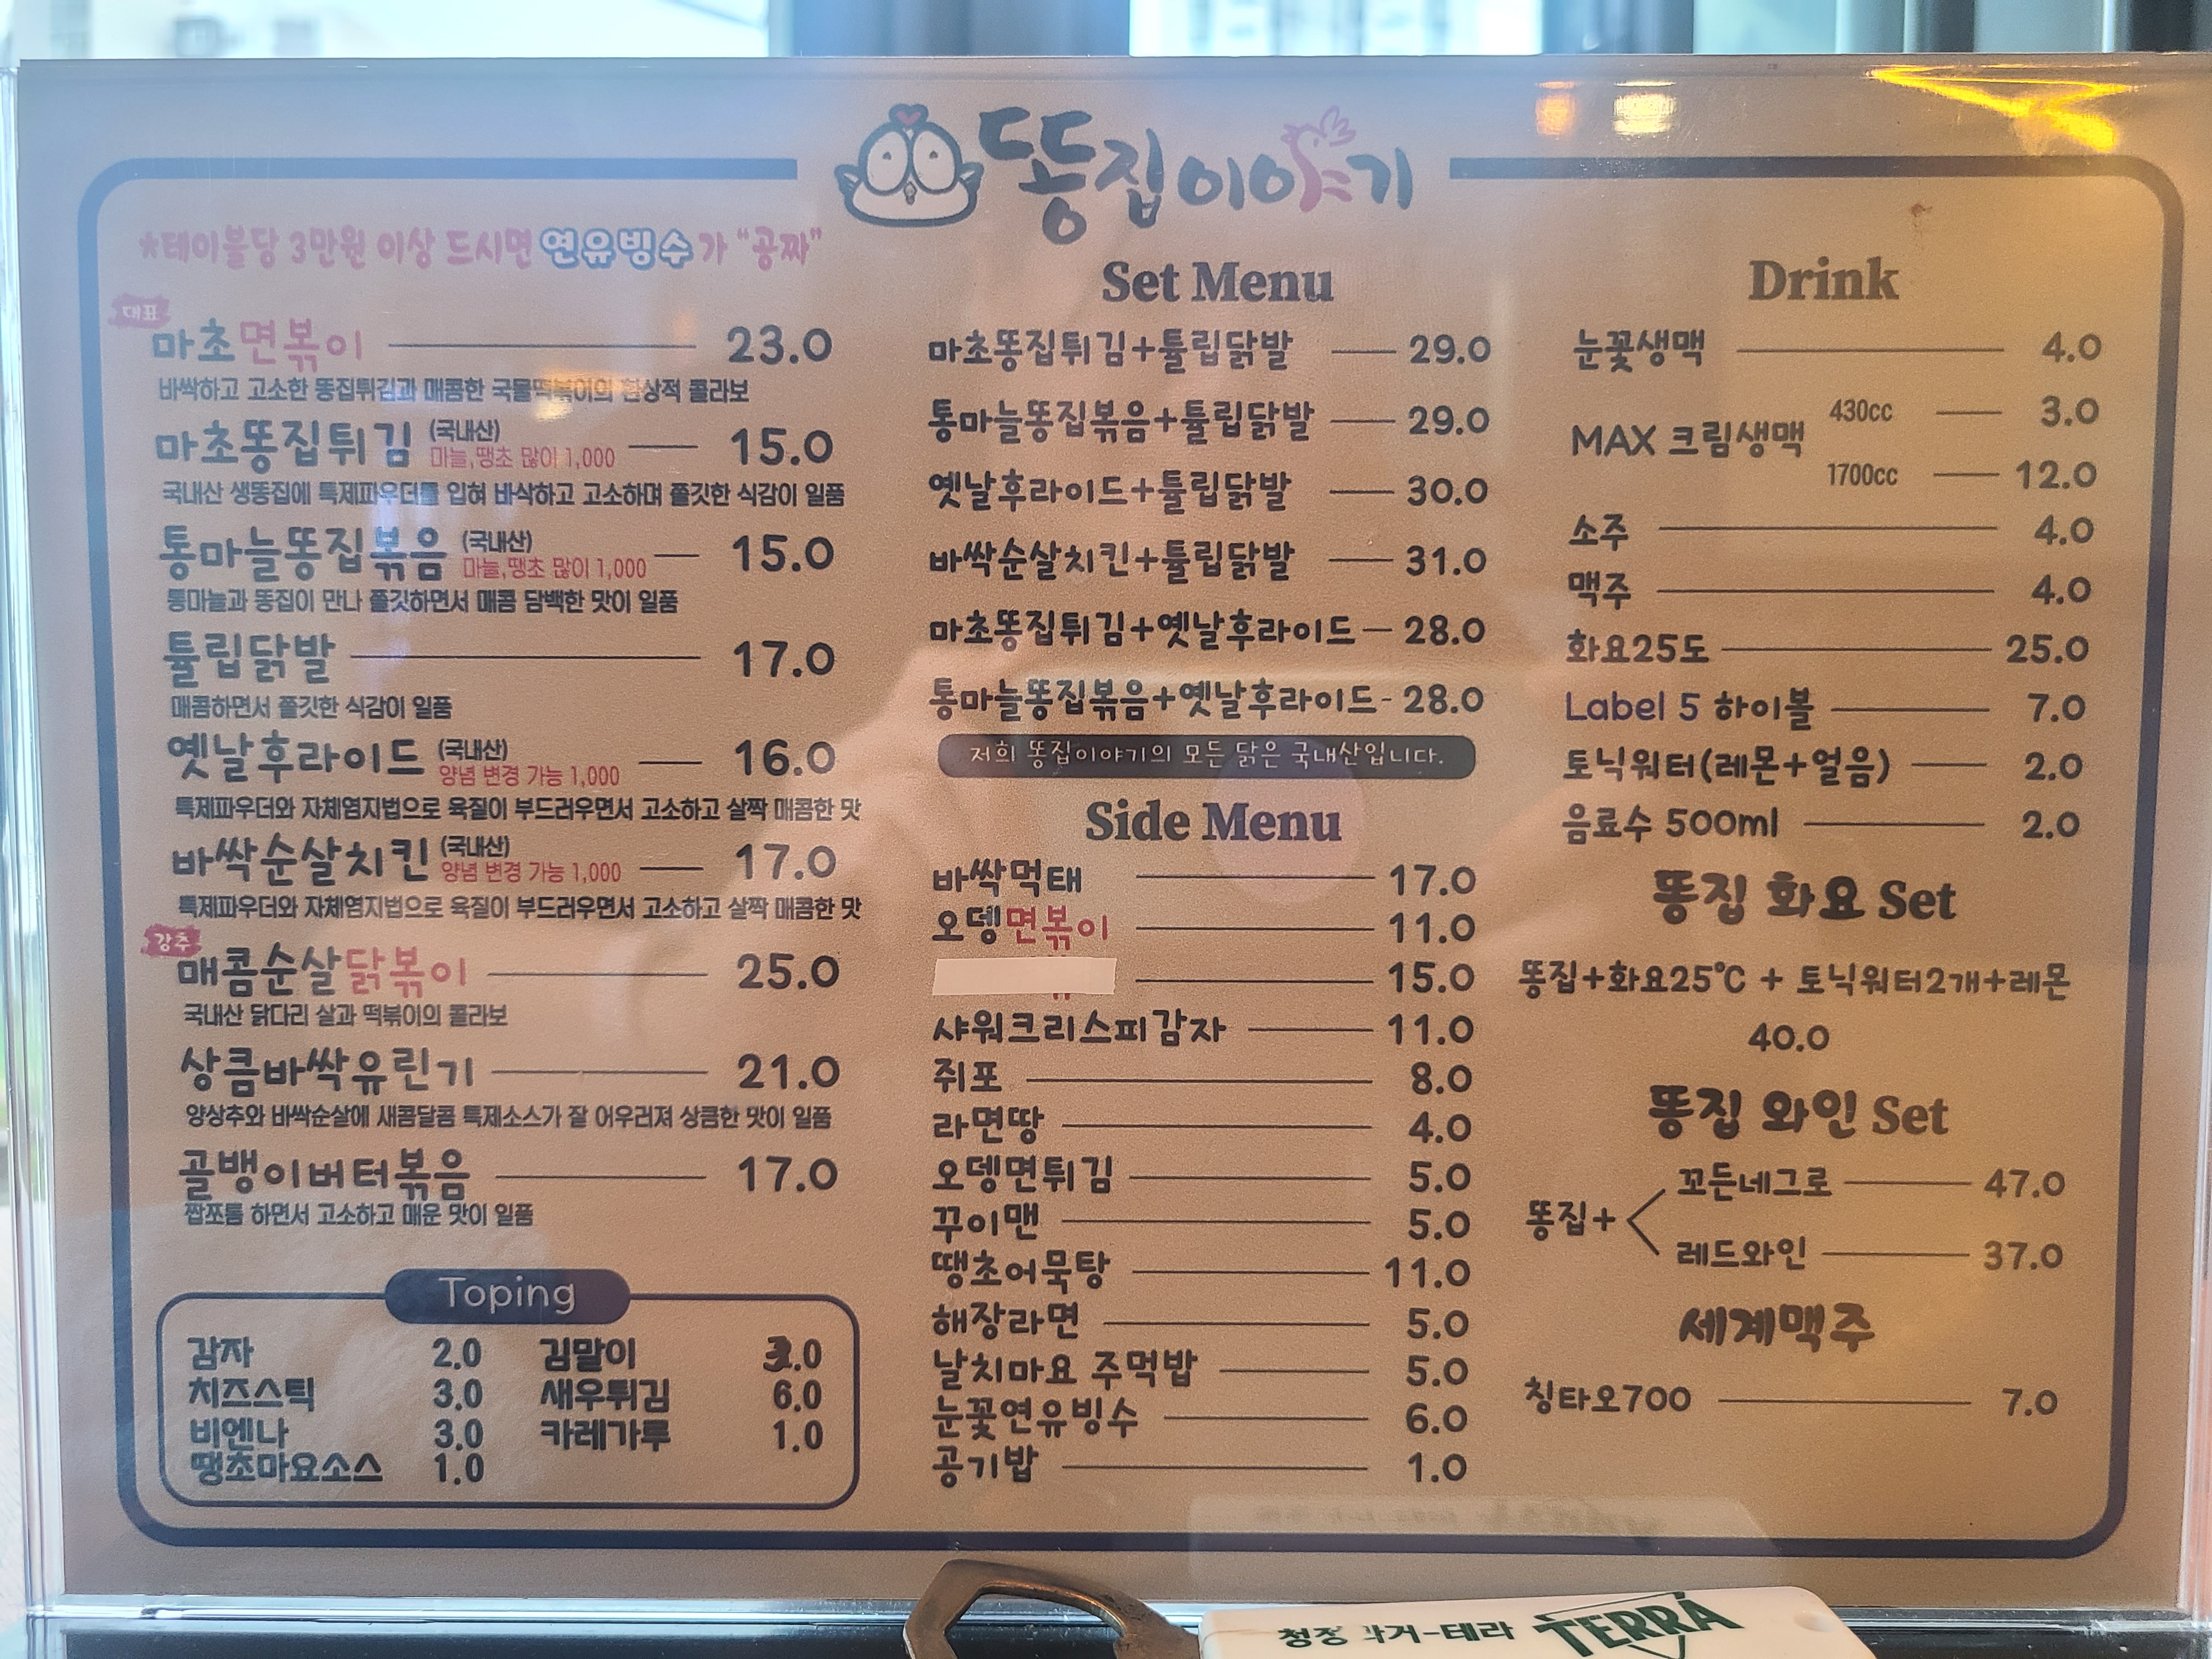 똥집이야기
*테이블당 3만원 이상 드시면 연유빙수가 "공짜"
대표
마초면볶이 23.0
바싹하고 고소한 똥집튀김과 매콤한 국물떡볶이의 환상적 콜라보
마초똥집튀김 (국내산) 마늘,땡초 많이 1,000 15.0
국내산 생똥집에 특제파우더를 입혀 바삭하고 고소하며 쫄깃한 식감이 일품
통마늘똥집볶음 (국내산) 마늘,땡초 많이 1,000 15.0
통마늘과 똥집이 만나 쫄깃하면서 매콤 담백한 맛이 일품
튤립닭발 17.0
매콤하면서 쫄깃한 식감이 일품
옛날후라이드 (국내산) 양념 변경 가능 1,000 16.0
특제파우더와 자체염지법으로 육질이 부드러우면서 고소하고 살짝 매콤한 맛
바싹순살치킨 (국내산) 양념 변경 가능 1,000 17.0
특제파우더와 자체염지법으로 육질이 부드러우면서 고소하고 살짝 매콤한 맛
강추
매콤순살닭볶이 25.0
국내산 닭다리 살과 떡볶이의 콜라보
상큼바싹유린기 21.0
양상추와 바싹순살에 새콤달콤 특제소스가 잘 어우러져 상큼한 맛이 일품
골뱅이버터볶음 17.0
짭쪼롬 하면서 고소하고 매운 맛이 일품
Toping
감자 2.0 김말이 .0
치즈스틱 3.0 새우튀김 6.0
비엔나 3.0 카레가루 1.0
땡초마요소스 1.0
Set Menu
마초똥집튀김+튤립닭발 29.0
통마늘똥집볶음+튤립닭발 29.0
옛날후라이드+튤립닭발 30.0
바싹순살치킨+튤립닭발 31.0
마초똥집튀김+옛날후라이드 28.0
통마늘똥집볶음+옛날후라이드 28.0
저희 똥집이야기의 모든 닭은 국내산입니다.
Side Menu
바싹먹태 17.0
오뎅면볶이 11.0
15.0
샤워크리스피감자 11.0
쥐포 8.0
라면땅 4.0
오뎅면튀김 5.0
꾸이맨 5.0
땡초어묵탕 11.0
해장라면 5.0
날치마요 주먹밥 5.0
눈꽃연유빙수 6.0
공기밥 1.0
Drink
눈꽃생맥 4.0
MAX 크림생맥 430cc 3.0
1700cc 12.0
소주 4.0
맥주 4.0
화요25도 25.0
Label 5 하이볼 7.0
토닉워터(레몬+얼음) 2.0
음료수 500ml 2.0
똥집 화요 Set
똥집+화요25℃ + 토닉워터2개+레몬
40.0
똥집 와인 Set
똥집+ 꼬든네그로 47.0
레드와인 37.0
세계맥주
칭타오700 7.0
청정 라거-테라 TERRA